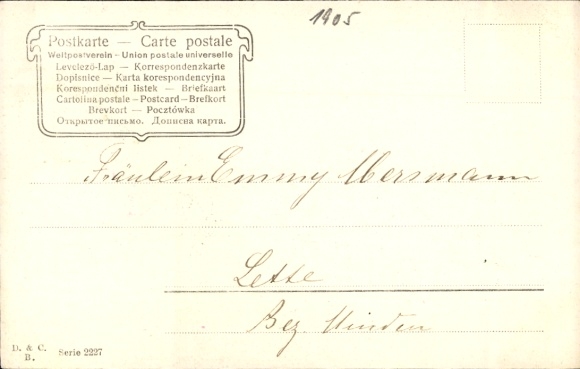 1905
Postkarte — Carte postale
Weltpostverein – Union postale universelle
Levelező-Lap — Korrespondenzkarte
Dopisnice — Karta korespondencyjna
Korespondenční lístek — Briefkaart
Cartolina postale – Postcard – Brefkort
Brevkort — Pocztówka
Открытое письмо. Дописна карта.
Fräulein Emmy Mersmann
Lette
Bez Minden
D. & C.
B.
Serie 2227